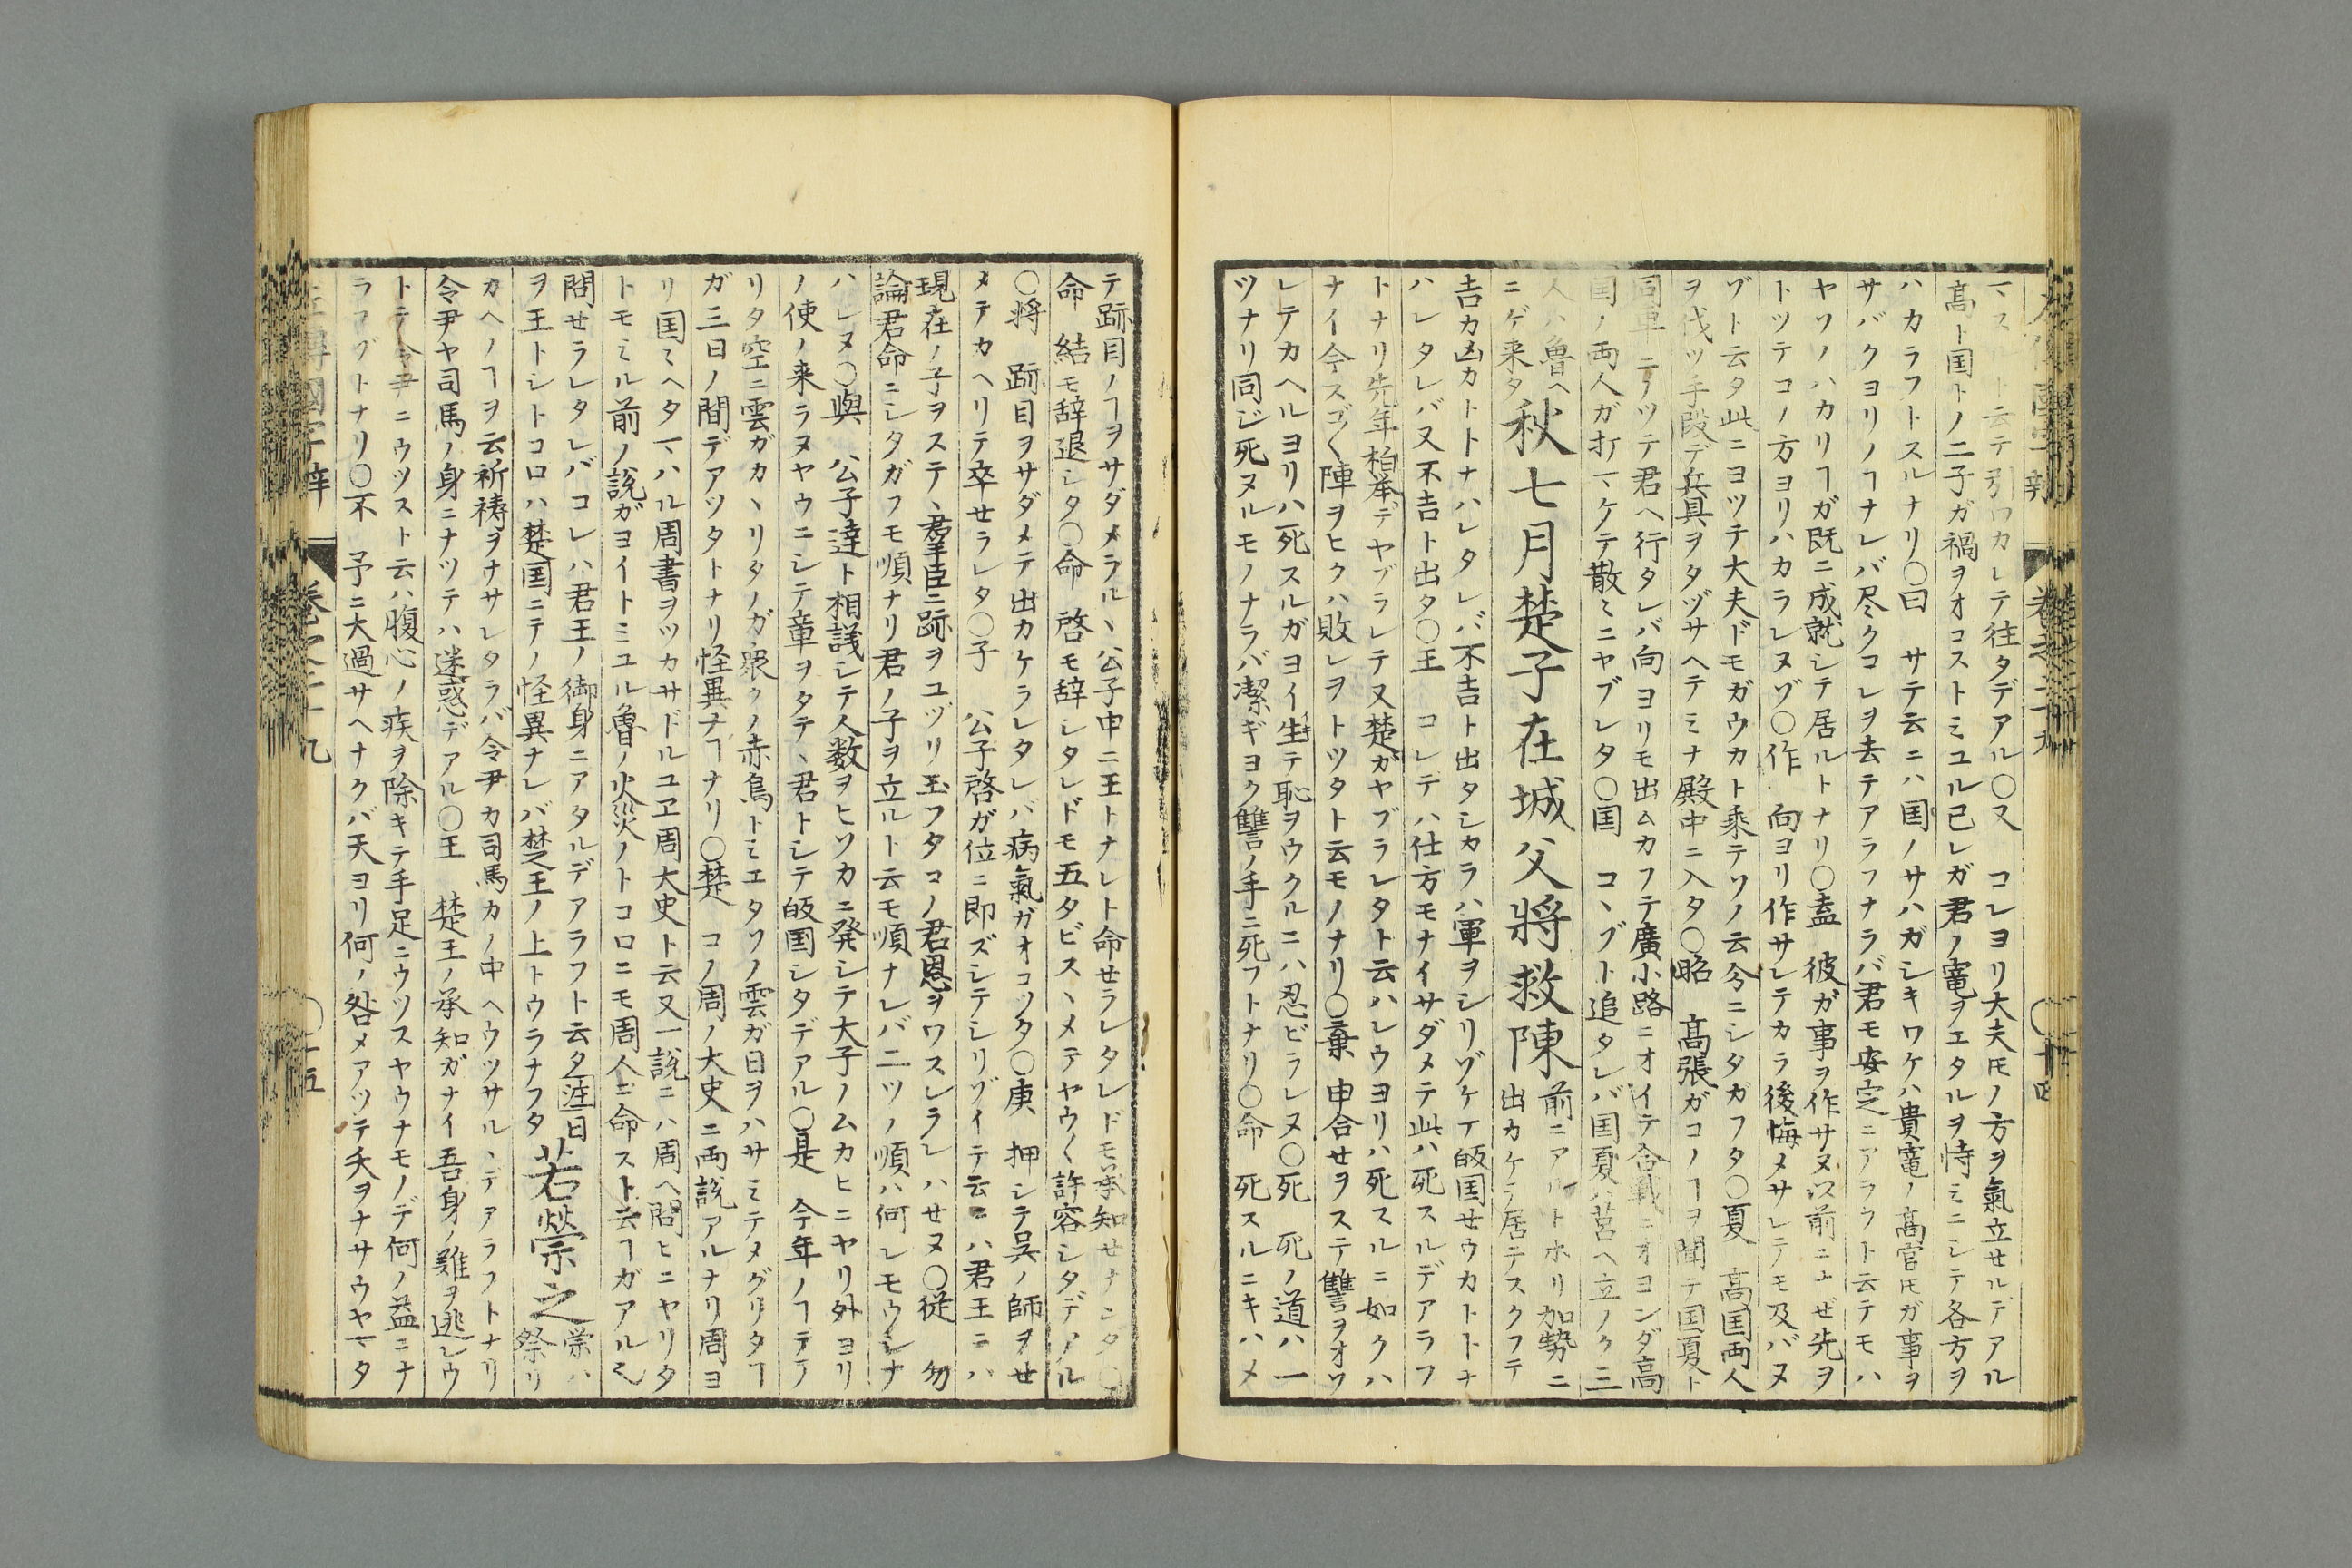 マスルト云テ引ワカレテ往タデアル○又　コレヨリ大夫𪜈ノ方ヲ氣立セルデアル
高ト国トノ二子ガ禍ヲオコストミユル已レガ君ノ寵ヲエタルヲ恃ミニシテ各方ヲ
ハカラフトスルナリ○曰　サテ云ニハ国ノサハガシキワケハ貴寵ノ高官𪜈ガ事ヲ
サバクヨリノヿナレバ尽クコレヲ去テアラフナラバ君モ安定ニアラウト云テモハ
ヤソノハカリヿガ既ニ成就シテ居ルトナリ○盍　彼ガ事ヲ作サヌ以前ニナゼ先ヲ
トツテコノ方ヨリハカラレヌゾ○作　向ヨリ作サレテカラ後悔メサレテモ及バヌ
ゾト云タ此ニヨツテ大夫ドモガウカト乗テソノ云今ニシタガフタ○夏　高国両人
ヲ伐ツ手段デ兵具ヲタヅサヘテミナ殿中ニ入タ○昭　高張ガコノヿヲ聞テ国夏ト
同車ニテツテ君ヘ行タレバ向ヨリモ出ムカフテ廣小路ニオイテ合戦ニオヨンダ高
国ノ両人ガ打マケテ散ミニヤブレタ○国　コヽゾト追タレバ国夏ハ莒ヘ立ノク三
人ハ魯ヘ
ニゲ来タ
秋七月楚子在城父將救陳
前ニアルトホリ加勢ニ
出カケテ居テスクフテ
吉カ凶カトトナハレタレバ不吉ト出タシカラハ軍ヲシリゾケテ皈国セウカトトナ
ハレタレバ又不吉ト出タ○王　コレデハ仕方モナイサダメテ此ハ死スルデアラフ
トナリ先年柏挙デヤブラレテ又楚ガヤブラレタト云ハレウヨリハ死スルニ如クハ
ナイ今スゴ〱陣ヲヒクハ敗レヲトツタト云モノナリ○棄　申合セヲステ讐ヲオソ
レテカヘルヨリハ死スルガヨイ生テ恥ヲウクルニハ忍ビラレヌ○死　死ノ道ハ一
ツナリ同ジ死ヌルモノナラバ潔ギヨク讐ノ手ニ死フトナリ○命　死スルニキハメ
テ跡目ノヿヲサダメラルヽ公子中ニ王トナレト命セラレタレドモ承知セナンダ○
命　結モ辞退シタ○命　啓モ辞シタレドモ五タビスヽメテヤウ〱許容シタデアル
○將　跡目ヲサダメテ出カケラレタレバ病氣ガオコツタ○庚　押シテ呉ノ師ヲせ
メテカヘリテ卒せラレタ○子　公子啓ガ位ニ即ズシテシリゾイテ云ニハ君王ニハ
現在ノ子ヲステヽ羣臣ニ跡ヲユヅリ玉フタコノ君恩ヲワスレラレハせヌ○従　勿
論君命ニシタガフモ順ナリ君ノ子ヲ立ルト云モ順ナレバ二ツノ順ハ何レモウシナ
ハレヌ○與　公子達ト相談シテ人数ヲヒソカニ発シテ大子ノムカヒニヤリ外ヨリ
ノ使ノ来ラヌヤウニシテ章ヲタテヽ君トシテ皈国シタデアル○是　今年ノヿデア
リタ空ニ雲ガカヽリタノガ衆クノ赤烏トミエタソノ雲ガ日ヲハサミテメグリタヿ
ガ三日ノ間デアツタトナリ怪異ナヿナリ○楚　コノ周ノ大史ニ両説アルナリ周ヨ
リ国ミヘタマハル周書ヲツカサドルユヱ周大史ト云又一説ニハ周ヘ問ヒニヤリタ
トモミル前ノ説ガヨイトミユル魯ノ火災ノトコロニモ周人ニ命スト云ヿガアル也
問せラレタレバコレハ君王ノ御身ニアタルデアラフト云タ注曰
ヲ王トシトコロハ楚国ニテノ怪異ナレバ楚王ノ上トウラナフタ
若禜之
禜ハ
祭リ
カヘノヿヲ云祈祷ヲナサレタラバ令尹カ司馬カノ中ヘウツサルヽデアラフトナリ
令尹ヤ司馬ノ身ニナツテハ迷惑デアル○王　楚王ノ承知ガナイ吾身ノ難ヲ逃レウ
トテ令尹ニウツスト云ハ腹心ノ疾ヲ除キテ手足ニウツスヤウナモノデ何ノ益ニナ
ラフゾトナリ○不　予ニ大過サヘナクバ天ヨリ何ノ咎メアツテ夭ヲナサウヤマタ
左傳國字辯　卷之二十九　○十五